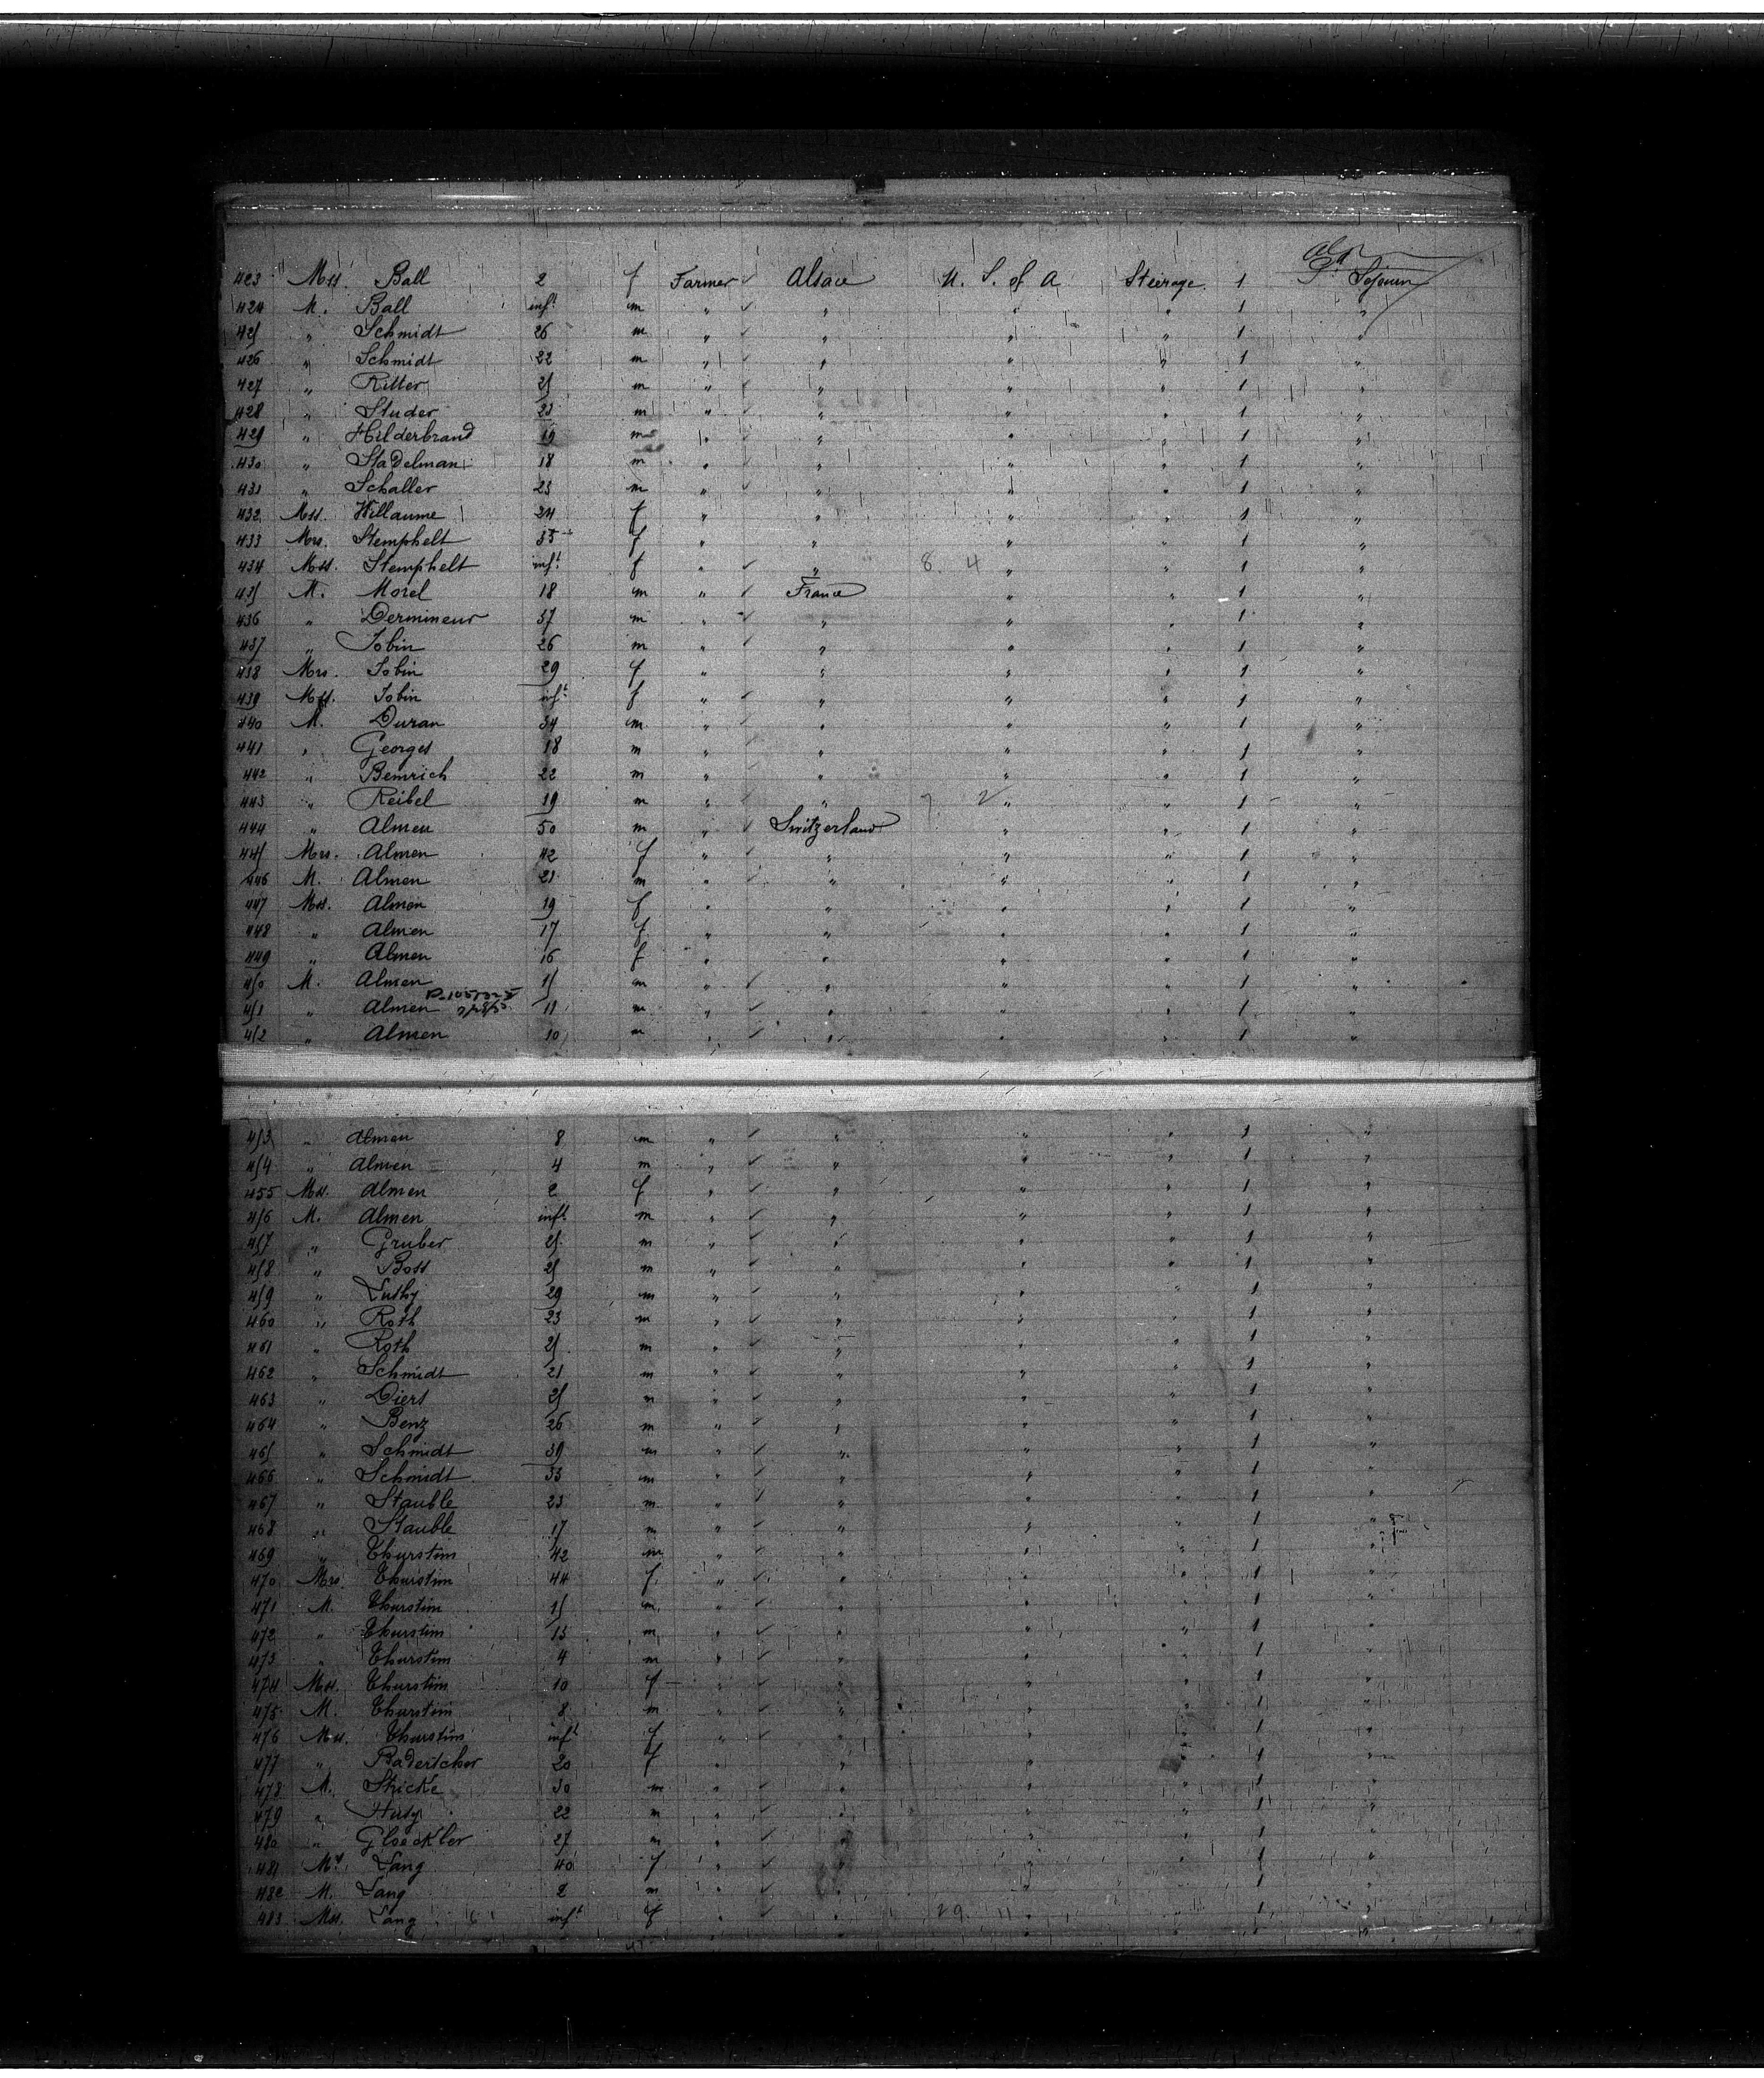 423 Mss Ball 2 f Farmer ✓ Alsace U. S. of A Steerage 1 Sejourn
424 M. Ball inft m " ✓ " " " 1 "
425 " Schmidt 26 m " ✓ " " " 1 "
426 " Schmidt 22 m " ✓ " " " 1 "
427 " Ritter 25 m " ✓ " " " 1 "
428 " Studer 23 m " ✓ " " " 1 "
429 " Hilderbrand 19 m " ✓ " " " 1 "
430 " Stadelman 18 m " ✓ " " " 1 "
431 " Schaller 23 m " ✓ " " " 1 "
432 Mss. Willaume 24 f " " " " 1 "
433 Mrs. Stemphelt 35 f " " " " 1 "
434 Mss. Stemphelt inft f " ✓ " 8. 4 " " 1 "
435 M. Morel 18 m " ✓ France " " 1 "
436 " Dermineur 37 m " ✓ " " " 1 "
437 " Tobin 26 m " ✓ " " " 1 "
438 Mrs. Tobin 29 f " " " " 1 "
439 Mss. Tobin inft f " ✓ " " " 1 "
440 M. Duran 34 m " ✓ " " " 1 "
441 " Georges 18 m " ✓ " " " 1 "
442 " Bemrich 22 m " ✓ " " " 1 "
443 " Reibel 19 m " ✓ " " " 1 "
444 " Almen 50 m " ✓ Switzerland " " 1 "
445 Mrs. Almen 42 f " ✓ " " " 1 "
446 M. Almen 21 m " ✓ " " " 1 "
447 Mss. Almen 19 f " " " " 1 "
448 " Almen 17 f " " " " 1 "
449 " Almen 16 f " " " " 1 "
450 M. Almen 15 m " ✓ " " " 1 "
451 " Almen 11 m " ✓ " " " 1 "
452 " Almen 10 m " ✓ " " " 1 "
453 " Almen 8 m " ✓ " " " 1 "
454 " Almen 4 m " ✓ " " " 1 "
455 Mss. Almen 2 f " ✓ " " " 1 "
456 M. Almen inft m " ✓ " " " 1 "
457 " Gruber 25 m " ✓ " " " 1 "
458 " Boss 25 m " ✓ " " " 1 "
459 " Luthy 29 m " ✓ " " " 1 "
460 " Roth 23 m " ✓ " " " 1 "
461 " Roth 25 m " ✓ " " " 1 "
462 " Schmidt 21 m " ✓ " " " 1 "
463 " Diers 25 m " ✓ " " " 1 "
464 " Benz 26 m " ✓ " " " 1 "
465 " Schmidt 39 m " ✓ " " " 1 "
466 " Schmidt 33 m " ✓ " " " 1 "
467 " Stauble 23 m " ✓ " " " 1 "
468 " Stauble 17 m " ✓ " " " 1 "
469 " Thurstim 42 m " ✓ " " " 1 "
470 Mrs. Thurstim 44 f " ✓ " " " 1 "
471 M. Thurstim 15 m " ✓ " " " 1 "
472 " Thurstim 13 m " ✓ " " " 1 "
473 " Thurstim 4 m " ✓ " " " 1 "
474 Mss. Thurstim 10 f " ✓ " " " 1 "
475 M. Thurstim 8 m " ✓ " " " 1 "
476 Mss. Thurstim inft f " ✓ " " " 1 "
477 " Badertcher 20 f " " " " 1 "
478 M. Stricke 30 m " ✓ " " " 1 "
479 " 22 m " ✓ " " " 1 "
480 " Gloeckler 27 m " ✓ " " " 1 "
481 Lang 40 f " ✓ " " " 1 "
482 M. Lang 2 m " ✓ " " " 1 "
483 Mss. Lang inft f " ✓ " 29. 11 " " 1 "